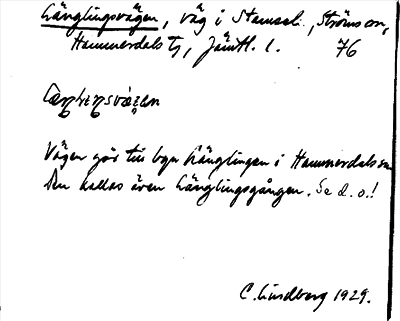 Länglingsvägen, väg i Stamsel., Ströms sn,
Hammerdals tg, Jämtl. l. 76
Vägen går till byn Länglingen i Hammerdals sn.
Den kallas även Länglingsgången. Se d. o.!
C. Lindberg 1929.